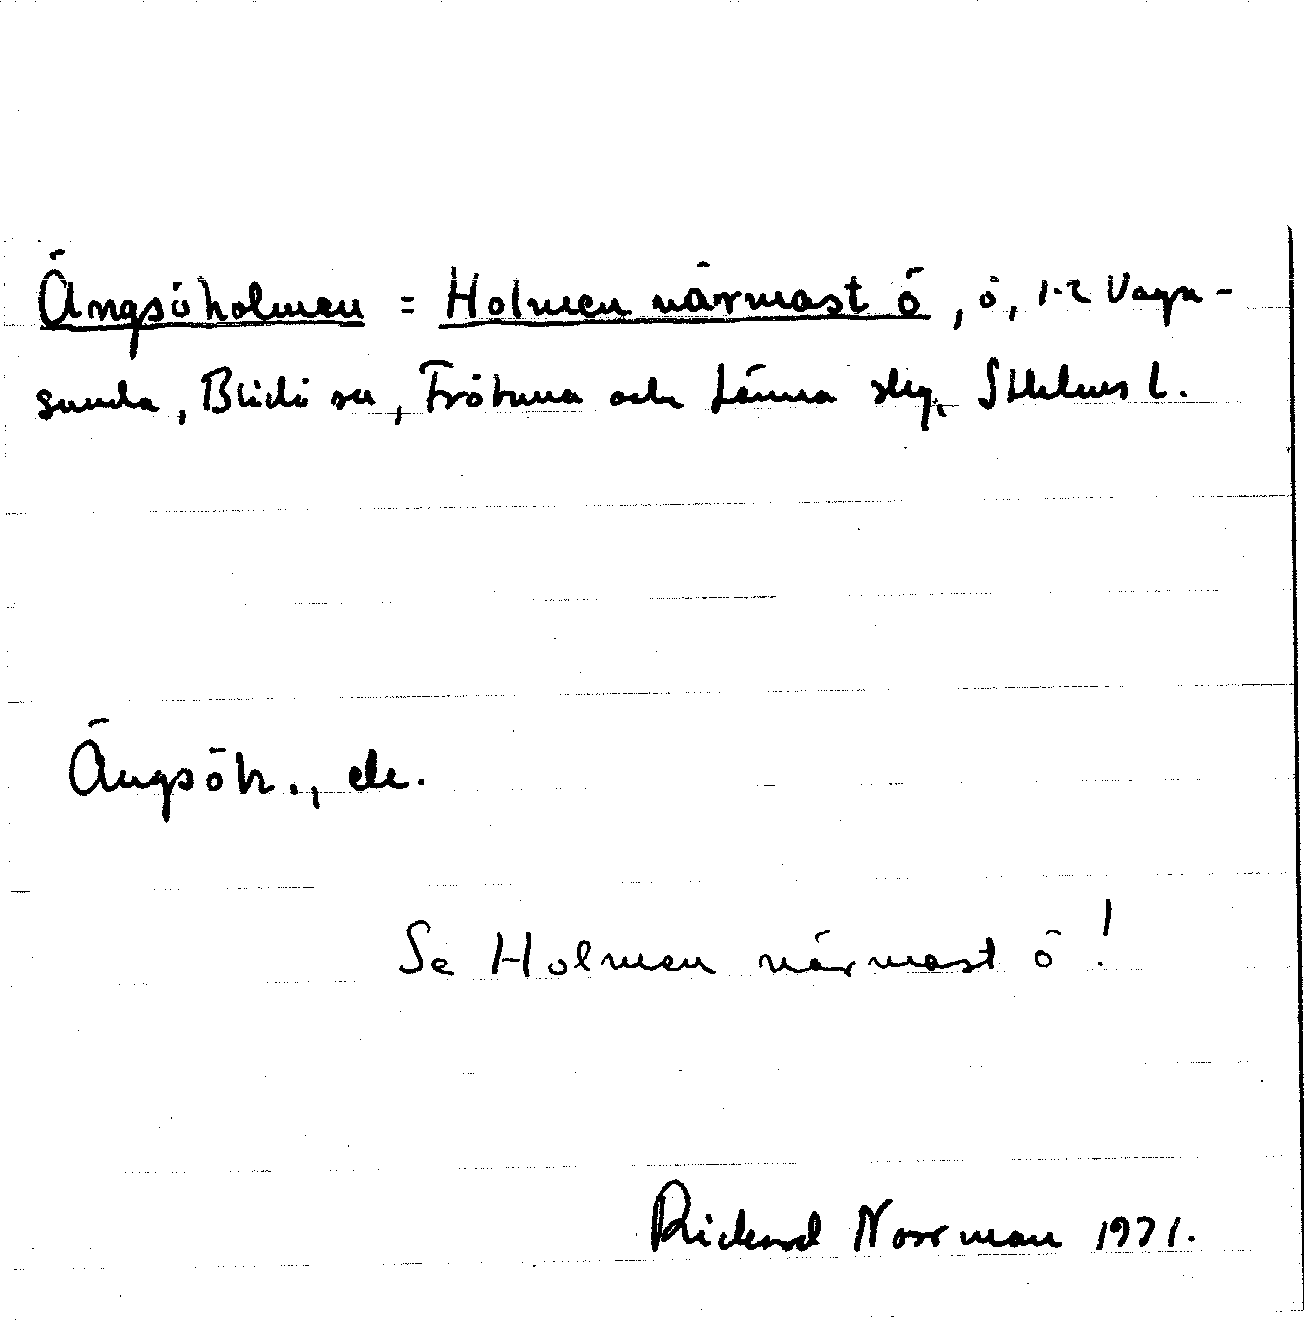 Ängsöholmen = Holmen närmast ö, ö, 1-2 Vagn-
sunda, Blidö sn, Frötuna och Länna skg, Sthlms l.
Ängsöh., ele.
Se Holmen närmast ö!
Rickard Norrman 1971.